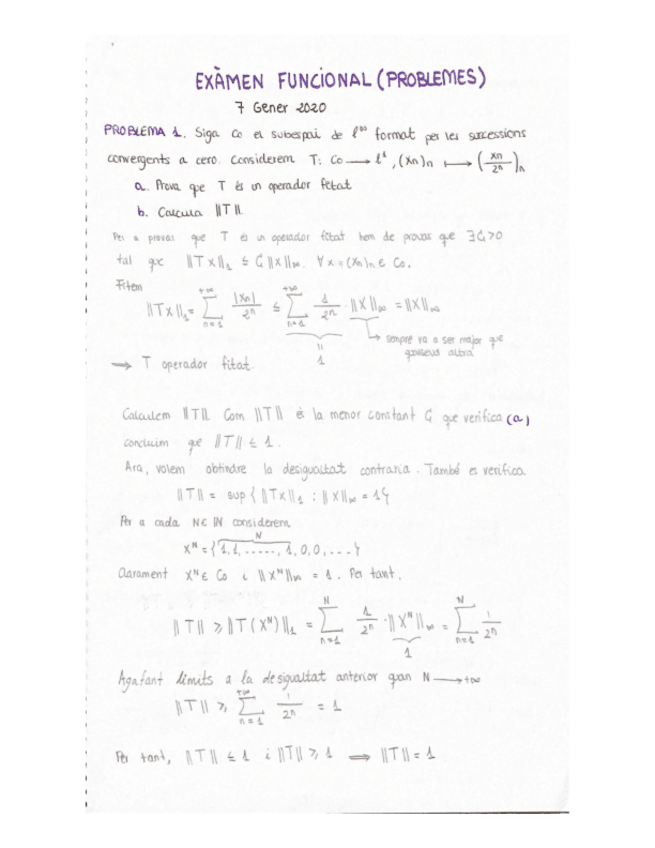 EXÀMEN FUNCIONAL (PROBLEMES)
7 Gener 2020
PROBLEMA 1. Siga C₀ el subespai de l^∞ format per les successions
convergents a cero. Considerem T: C₀ → l¹, (xₙ)ₙ ↦ (xₙ/2ⁿ)ₙ
a. Prova que T és un operador fitat
b. Calcula ‖T‖.
Per a provar que T és un operador fitat hem de provar que ∃G>0
tal que ‖Tx‖₁ ≤ G‖x‖∞ ∀x=(xₙ)ₙ ∈ C₀.
Fitem
‖Tx‖₁ = ∑_{n=1}^{+∞} |xₙ|/2ⁿ ≤ ∑_{n=1}^{+∞} 1/2ⁿ · ‖x‖∞ = ‖x‖∞
→ sempre va a ser major que
qualsevol altra
" 1
→ T operador fitat.
Calculem ‖T‖. Com ‖T‖ és la menor constant G que verifica (a)
concluim que ‖T‖ ≤ 1.
Ara, volem obtindre la desigualtat contraria. També es verifica
‖T‖ = sup{‖Tx‖₁ : ‖x‖∞ = 1}
Per a cada N∈ℕ considerem
N
x^N = {1,1,.....,1,0,0,...}
Clarament x^N ∈ C₀ i ‖x^N‖∞ = 1. Per tant,
‖T‖ ≥ ‖T(x^N)‖₁ = ∑_{n=1}^{N} 1/2ⁿ · ‖x^N‖∞ = ∑_{n=1}^{N} 1/2ⁿ
1
Agafant límits a la desigualtat anterior quan N → +∞
‖T‖ ≥ ∑_{n=1}^{+∞} 1/2ⁿ = 1
Per tant, ‖T‖ ≤ 1 i ‖T‖ ≥ 1 ⟹ ‖T‖ = 1